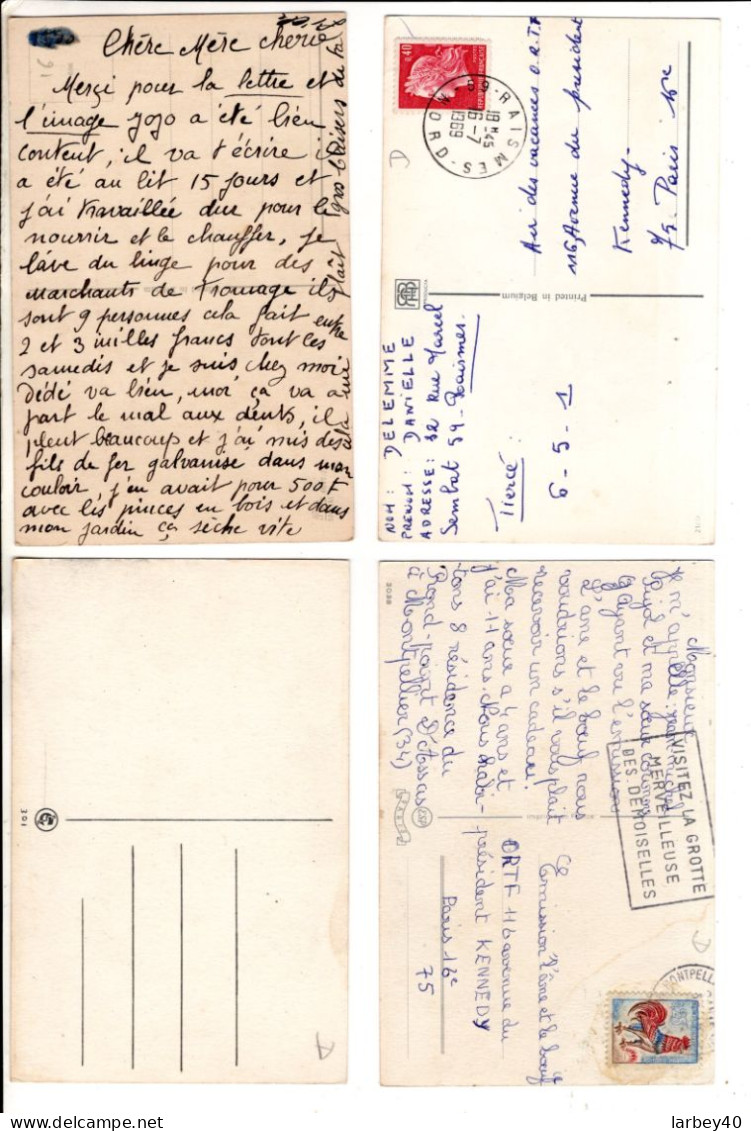 Chère Mère chérie
Merçi pour la lettre et
l'image jojo a été bien
content, il va t'écrire il
a été au lit 15 jours et
j'ai travaillée dur pour le
nourrir et le chauffer, je
lave du linge pour des
marchants de fromage ils
sont 9 personnes cela fait entre
2 et 3 milles francs tout les
samedis et je suis chez moi
Dédé va bien, moi ça va a
part le mal aux dents, il
pleut beaucoup et j'ai mis des
fils de fer galvanisé dans mon
couloir, j'en avait pour 500F
avec les pinces en bois et dans
mon jardin ça sèche vite
gros baisers
0,40
REPUBLIQUE FRANÇAISE
59-RAISMES-NORD
18H45
6-7
1969
D
Air des vacances O.R.T.F
116 Avenue du président
Kennedy-
75 Paris 16e
Printed in Belgium
NOM: DELEMME
PRENOM: DANIELLE
ADRESSE: 32 Rue Marcel
Sembat 59-Raismes.
Tiercé:
6-5-1
201
D
3088
Monsieur
je m'appelle: Jean-Michel
Pujol et ma sœur
ayant vu l'émission
L'ane et le bœuf nous
voudrions s'il vous plait
recevoir un cadeau
Ma sœur a 4 ans et
j'ai 11 ans. Nous habi-
tons 8 résidence du
Rond-Point D'Assas
à Montpellier (34)
VISITEZ LA GROTTE
MERVEILLEUSE
DES DEMOISELLES
Emission l'âne et le bœuf
ORTF 116 avenue du
président KENNEDY
Paris 16e
75
D
MONTPELL
larbey40